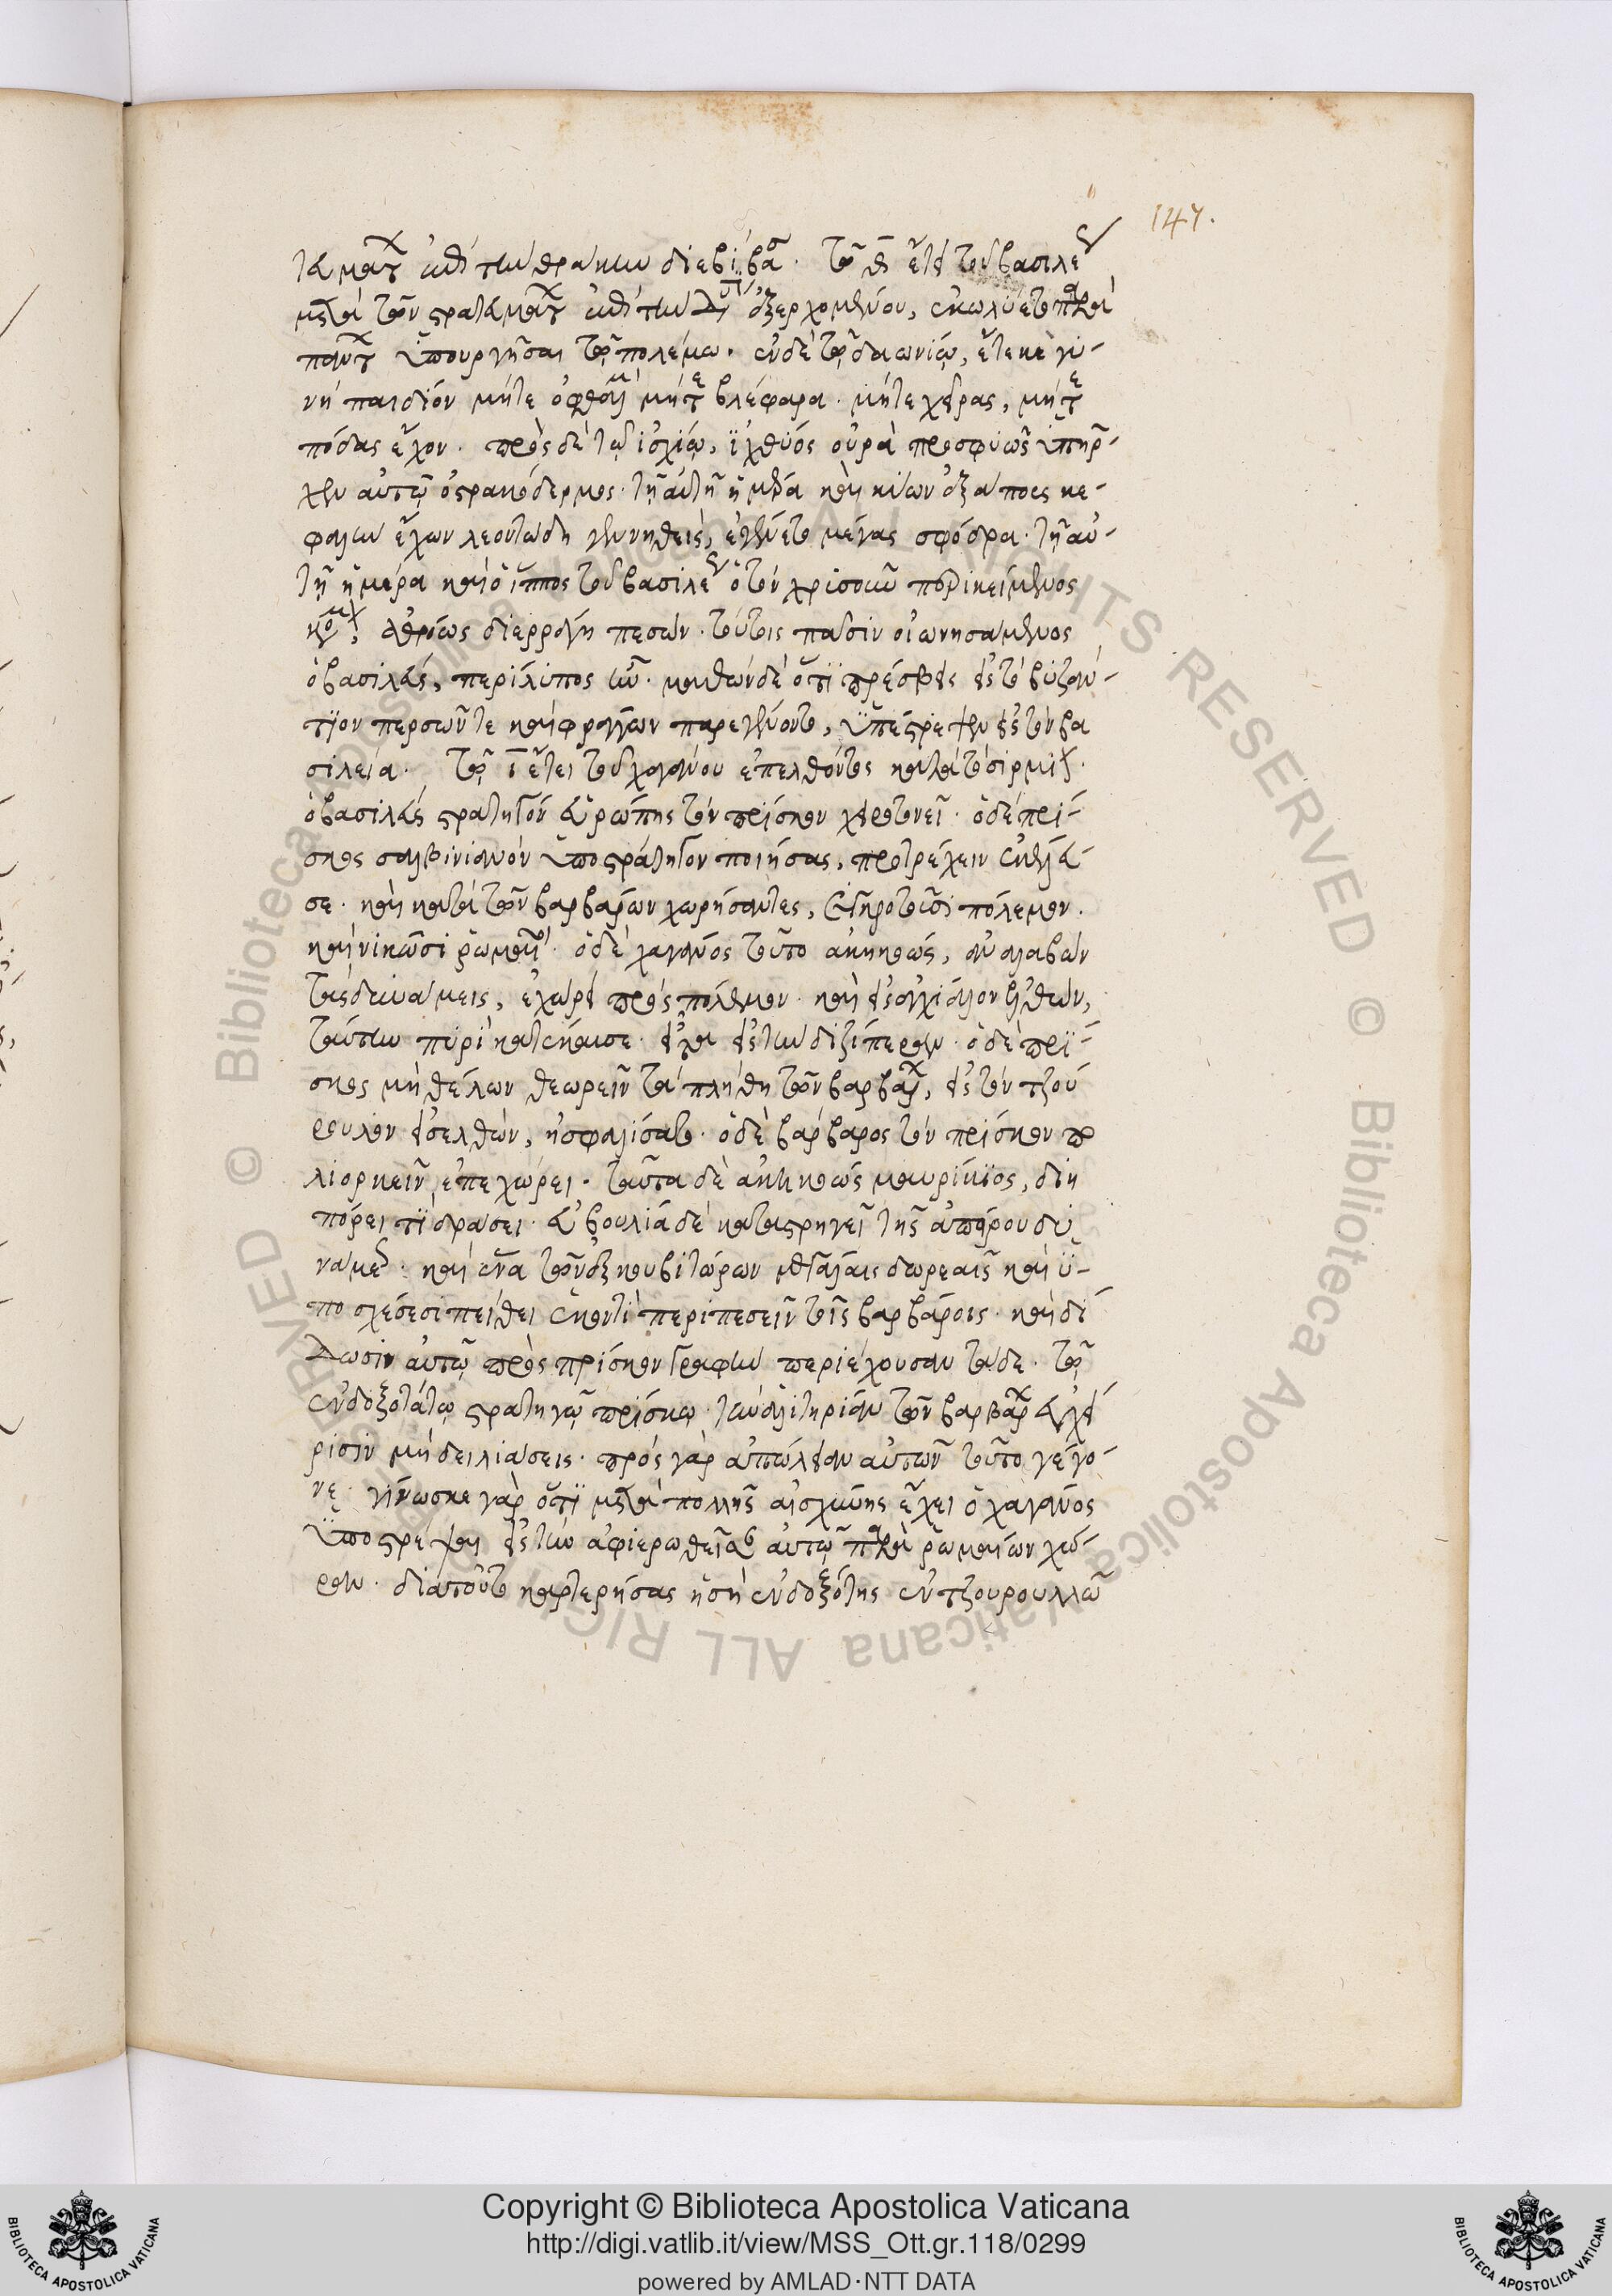 τεύματα ἐπὶ τὴν θράκην διεβίβασε. τῷ θ ἔτει τοῦ βασιλέως
μετὰ τῶν στρατευμάτων ἐπὶ τὴν ἐξερχομένου, ἐκωλύετο παρὰ
πάντων ὑπουργῆσαι τῷ πολέμῳ. ἐν δὲ τῷ δαωνίῳ, ἔτεκε γυ-
νὴ παιδίον μήτε ὀφθαλμοὺς μήτε βλέφαρα. μήτε χεῖρας, μήτε
πόδας ἔχον. πρὸς δὲ τῷ ἰσχίῳ, ἰχθύος οὐρὰ προσφυῶς ὑπῆρ-
χεν αὐτῷ ὀστρακόδερμος. τῇ αὐτῇ ἡμέρα καὶ κύων ἑξάπους κε-
φαλὴν ἔχων λεοντώδη γεννηθεὶς, ἐγένετο μέγας σφόδρα. τῇ αὐ-
τῇ ἡμέρα καὶ ὁ ἵππος τοῦ βασιλέως ὁ τὸν χρυσοῦν περικείμενος
κόσμον, ἀθρόως διερράγη πεσών. τούτοις πᾶσιν οἰωνησάμενος
ὁ βασιλεὺς, περίλυπος ἦν. μαθὼν δὲ ὅτι πρέσβεις εἰς τὸ βυζάν-
τιον περσῶν τε καὶ φράγγων παρεγένοντο, ὑπέστρεψεν εἰς τὰ βα
σίλεια. τῷ ι ἔτει τοῦ χαγάνου ἐπελθόντος κατὰ τὸ σίρμιον.
ὁ βασιλεὺς στρατηγὸν εὐρώπης τὸν πρίσκον χειροτονεῖ. ὁ δὲ πρί-
σκος σαλβινιανὸν ὑποστράτηγον ποιήσας, προτρέχειν ἐκέλευ-
σε. καὶ κατὰ τῶν βαρβάρων χωρήσαντες, συγκροτοῦσι πόλεμον.
καὶ νικῶσι ῥωμαῖοι. ὁ δὲ χαγάνος τοῦτο ἀκηκοὼς, ἀναλαβὼν
τὰς δυνάμεις, ἐχώρει πρὸς πόλεμον. καὶ εἰς ἀγχίαλον ἐλθὼν,
ταύτην πυρὶ κατέκαυσε. εἶτα εἰς τὴν διζίπεραν. ὁ δὲ πρί-
σκος μὴ θέλων θεωρεῖν τὰ πλήθη τῶν βαρβάρων, εἰς τὸν τζού
ρουλον εἰσελθὼν, ἠσφαλίσατο. ὁ δὲ βάρβαρος τὸν πρίσκον πο
λιορκεῖν ἐπεχώρει. ταῦτα δὲ ἀκηκοὼς μαυρίκιος, διη
πόρει τί δράσει. εὐβουλία δὲ καταστρηγεῖ τῆς ἀπείρου δυ
νάμεως. καὶ ἕνα τῶν ἐξκουβιτώρων μεγάλαις δωρεαῖς καὶ ὑ-
ποσχέσεσι πείθει ἑκοντὶ περιπεσεῖν τοῖς βαρβάροις. καὶ δί
δωσιν αὐτῷ πρὸς πρίσκον γραφὴν περιέχουσαν τάδε. τῷ
ἐνδοξοτάτῳ στρατηγῷ πρίσκῳ. τὴν ἀλιτηρίαν τῶν βαρβάρων ἐγχεί
ρισιν μὴ δειλιάσεις. πρὸς γὰρ ἀπώλειαν αὐτῶν τοῦτο γέγο-
νε. γίνωσκε γὰρ ὅτι μετὰ πολλῆς αἰσχύνης ἔχει ὁ χαγάνος
ὑποστρέψαι εἰς τὴν ἀφιερωθεῖσαν αὐτῷ παρὰ ῥωμαίων χώ-
ραν. διὰ τοῦτο καρτερήσας ἡ σὴ ἐνδοξότης ἐν τζουρουλλῷ
147.
Copyright © Biblioteca Apostolica Vaticana
http://digi.vatlib.it/view/MSS_Ott.gr.118/0299
powered by AMLAD·NTT DATA
© Biblioteca Apostolica Vaticana ALL RIGHTS RESERVED
© Biblioteca Apostolica Vaticana ALL RIGHTS RESERVED
BIBLIOTECA APOSTOLICA VATICANA
BIBLIOTECA APOSTOLICA VATICANA